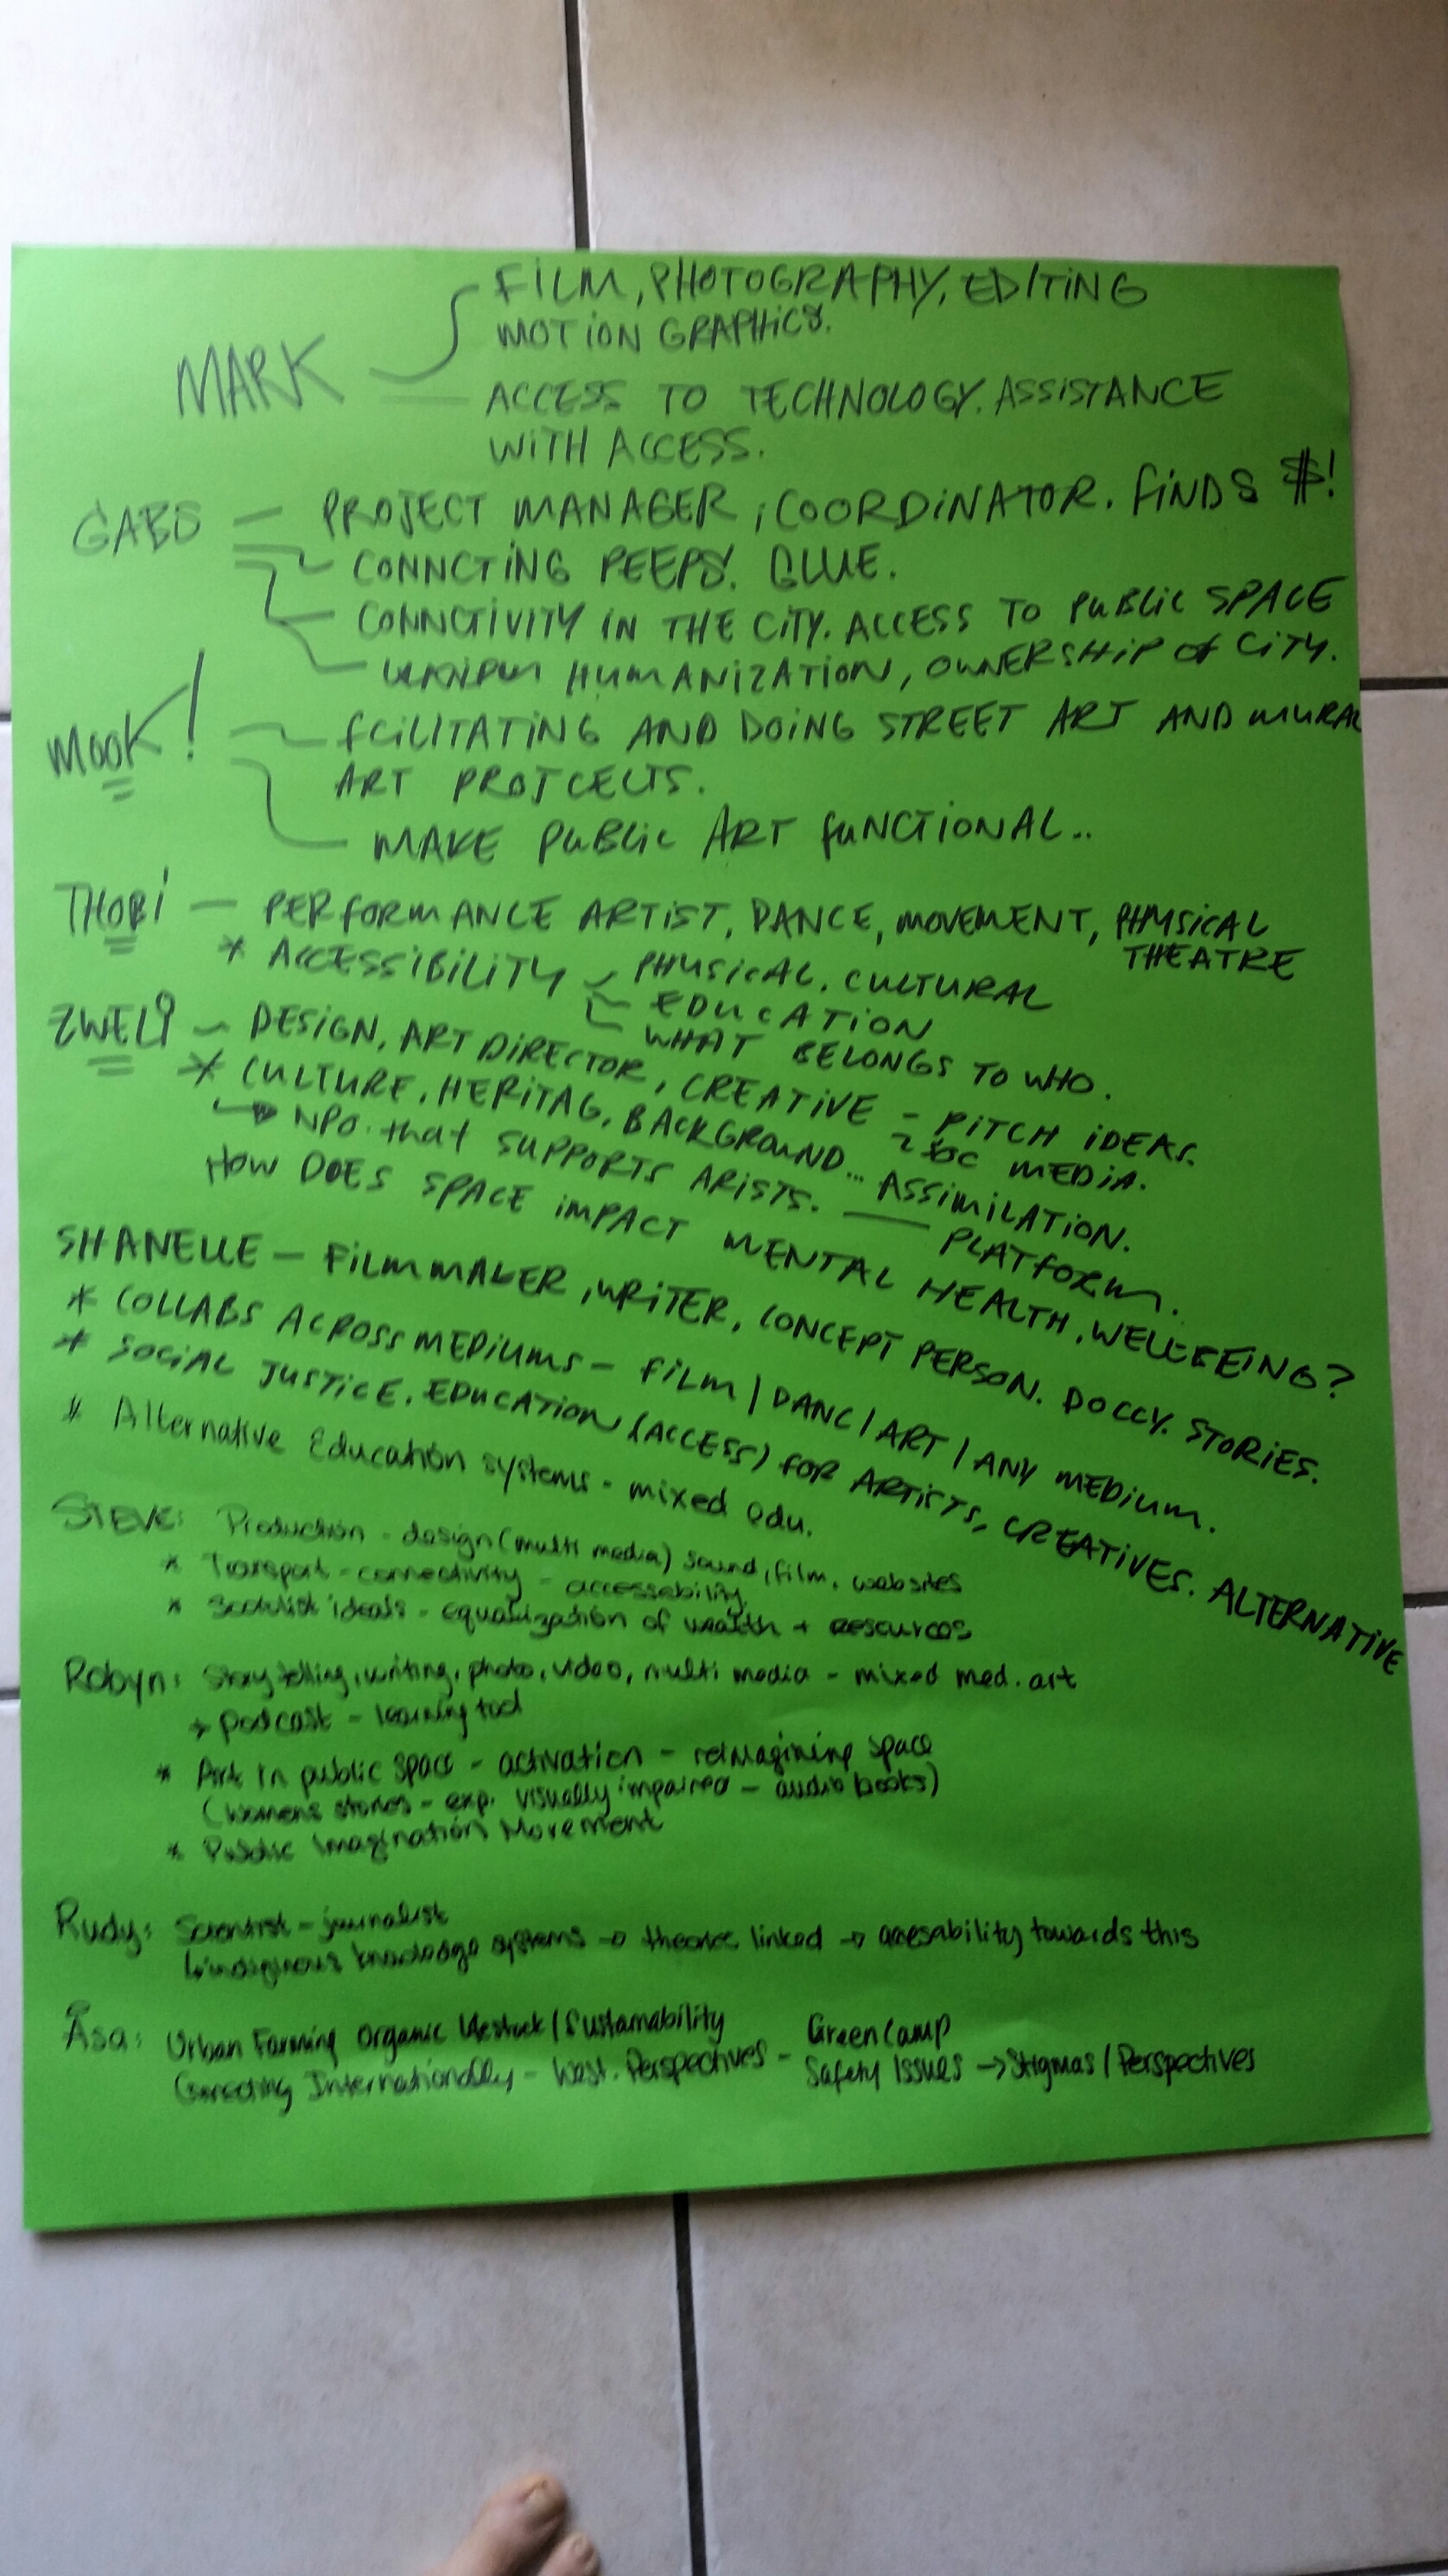 MARK
FILM, PHOTOGRAPHY, EDITING
MOTION GRAPHICS.
ACCESS TO TECHNOLOGY. ASSISTANCE
WITH ACCESS.
GABS — PROJECT MANAGER, COORDINATOR. FINDS $!
CONNCTING PEEPS. GLUE.
CONNCTIVITY IN THE CITY. ACCESS TO PUBLIC SPACE
HUMANIZATION, OWNERSHIP OF CITY.
MOOK!
FCILITATING AND DOING STREET ART AND MURAL
ART PROJCECTS.
MAKE PUBLIC ART FUNCTIONAL..
THOBI — PERFORMANCE ARTIST, DANCE, MOVEMENT, PHYSICAL
THEATRE
* ACCESSIBILITY PHYSICAL, CULTURAL
EDUCATION
WHAT BELONGS TO WHO.
ZWELI — DESIGN, ART DIRECTOR, CREATIVE — PITCH IDEAS.
MEDIA.
* CULTURE, HERITAG, BACKGROUND... ASSIMILATION.
→ NPO. that SUPPORTS ARISTS. — PLATFORM.
HOW DOES SPACE IMPACT MENTAL HEALTH, WELLBEING?
SHANELLE — FILMMAKER, WRITER, CONCEPT PERSON. DOCCY. STORIES.
* COLLABS ACROSS MEDIUMS — FILM / DANC / ART / ANY MEDIUM.
* SOCIAL JUSTICE. EDUCATION (ACCESS) FOR ARTISTS, CREATIVES. ALTERNATIVE
* Alternative Education systems - mixed edu.
STEVE: Production - design (multi media) sound, film, websites
* Transport - connectivity - accessability
* Socialist ideals - equalization of wealth + resources
Robyn: Story telling, writing, photo, video, multi media - mixed med. art
→ podcast - learning tool
* Art in public space - activation - reimagining space
(womens stories - exp. visually impaired - audio books)
* Public Imagination Movement
Rudy: Scientist - journalist
indigenous knowledge systems → theories linked → accesability towards this
Åsa: Urban Farming Organic / Sustainability
Green Camp
Internationally - West. Perspectives - Safety Issues → Stigmas / Perspectives